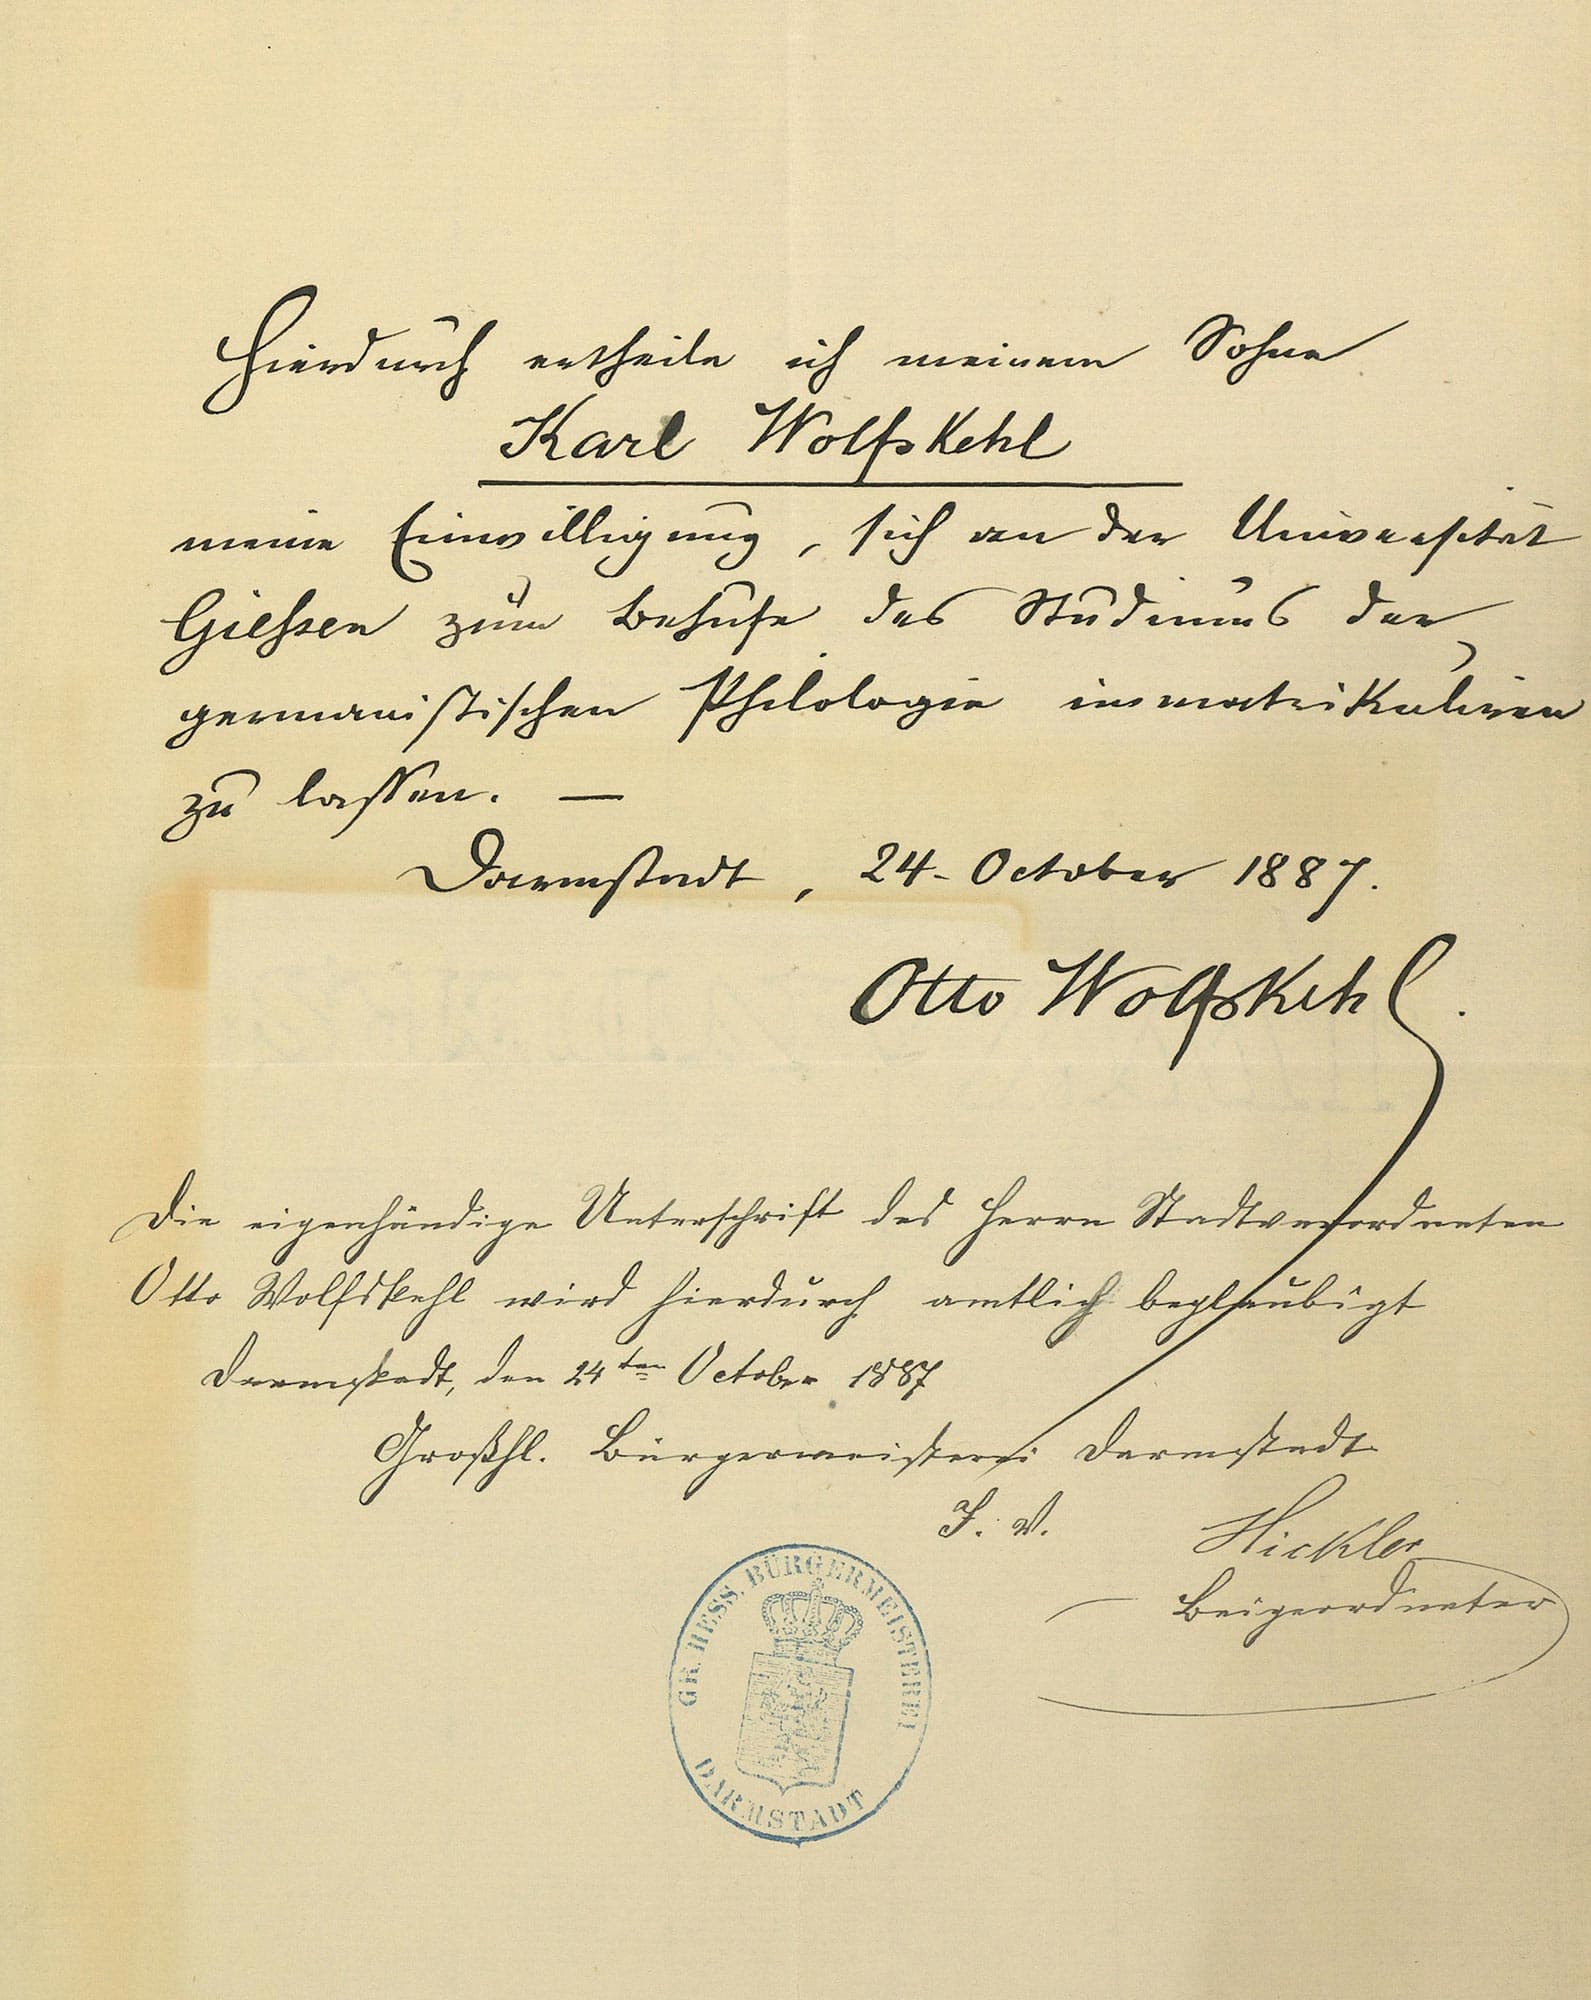 Hierdurch ertheile ich meinem Sohne
Karl Wolfskehl
meine Einwilligung, sich an der Universität
Giessen zum Behufe des Studiums der
germanistischen Philologie immatrikuliren
zu lassen. —
Darmstadt, 24. October 1887.
Otto Wolfskehl.
Die eigenhändige Unterschrift des Herrn Stadtverordneten
Otto Wolfskehl wird hierdurch amtlich beglaubigt
Darmstadt, den 24ten October 1887
Großhl. Bürgermeisterei Darmstadt
I. V.
Hickler
Beigeordneter
GR. HESS. BÜRGERMEISTEREI
DARMSTADT